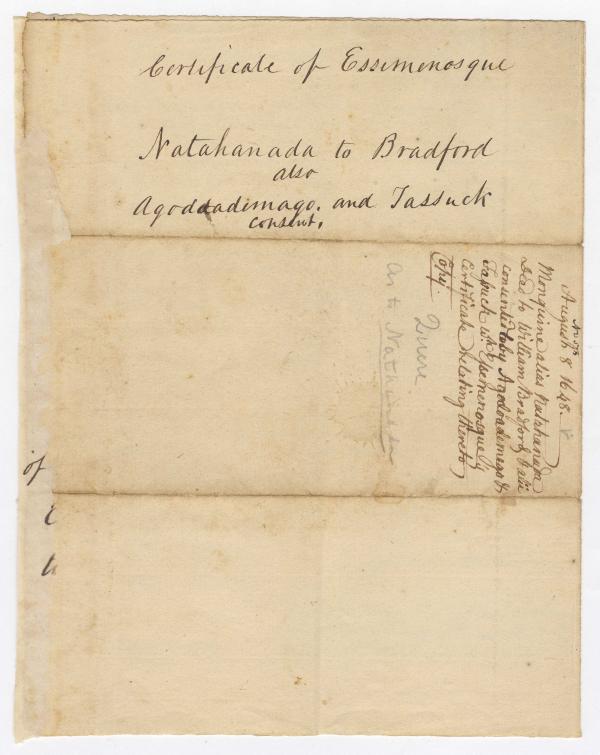 Certificate of Essemenosque
Natahanada to Bradford
also
Agoddadimago. and Tassuck
consent.
August 8 1648.
Monquine alias Natahanada
Dead to William Bradford & alii
consented by Agodoademago &
Tassuck wth Essemenosque's
Certificate relating thereto
Copy.
Quere
as to
of